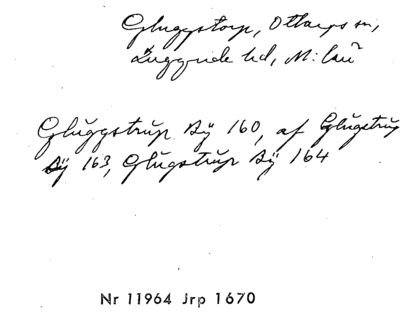 Gluggstorp, Ottarps sn,
Luggude hd, M: län
Glŭggstrŭp Bÿ 160, af Glŭgstrŭp
Bÿ 163, Glŭgstrŭp Bÿ 164
Nr 11964 Jrp 1670